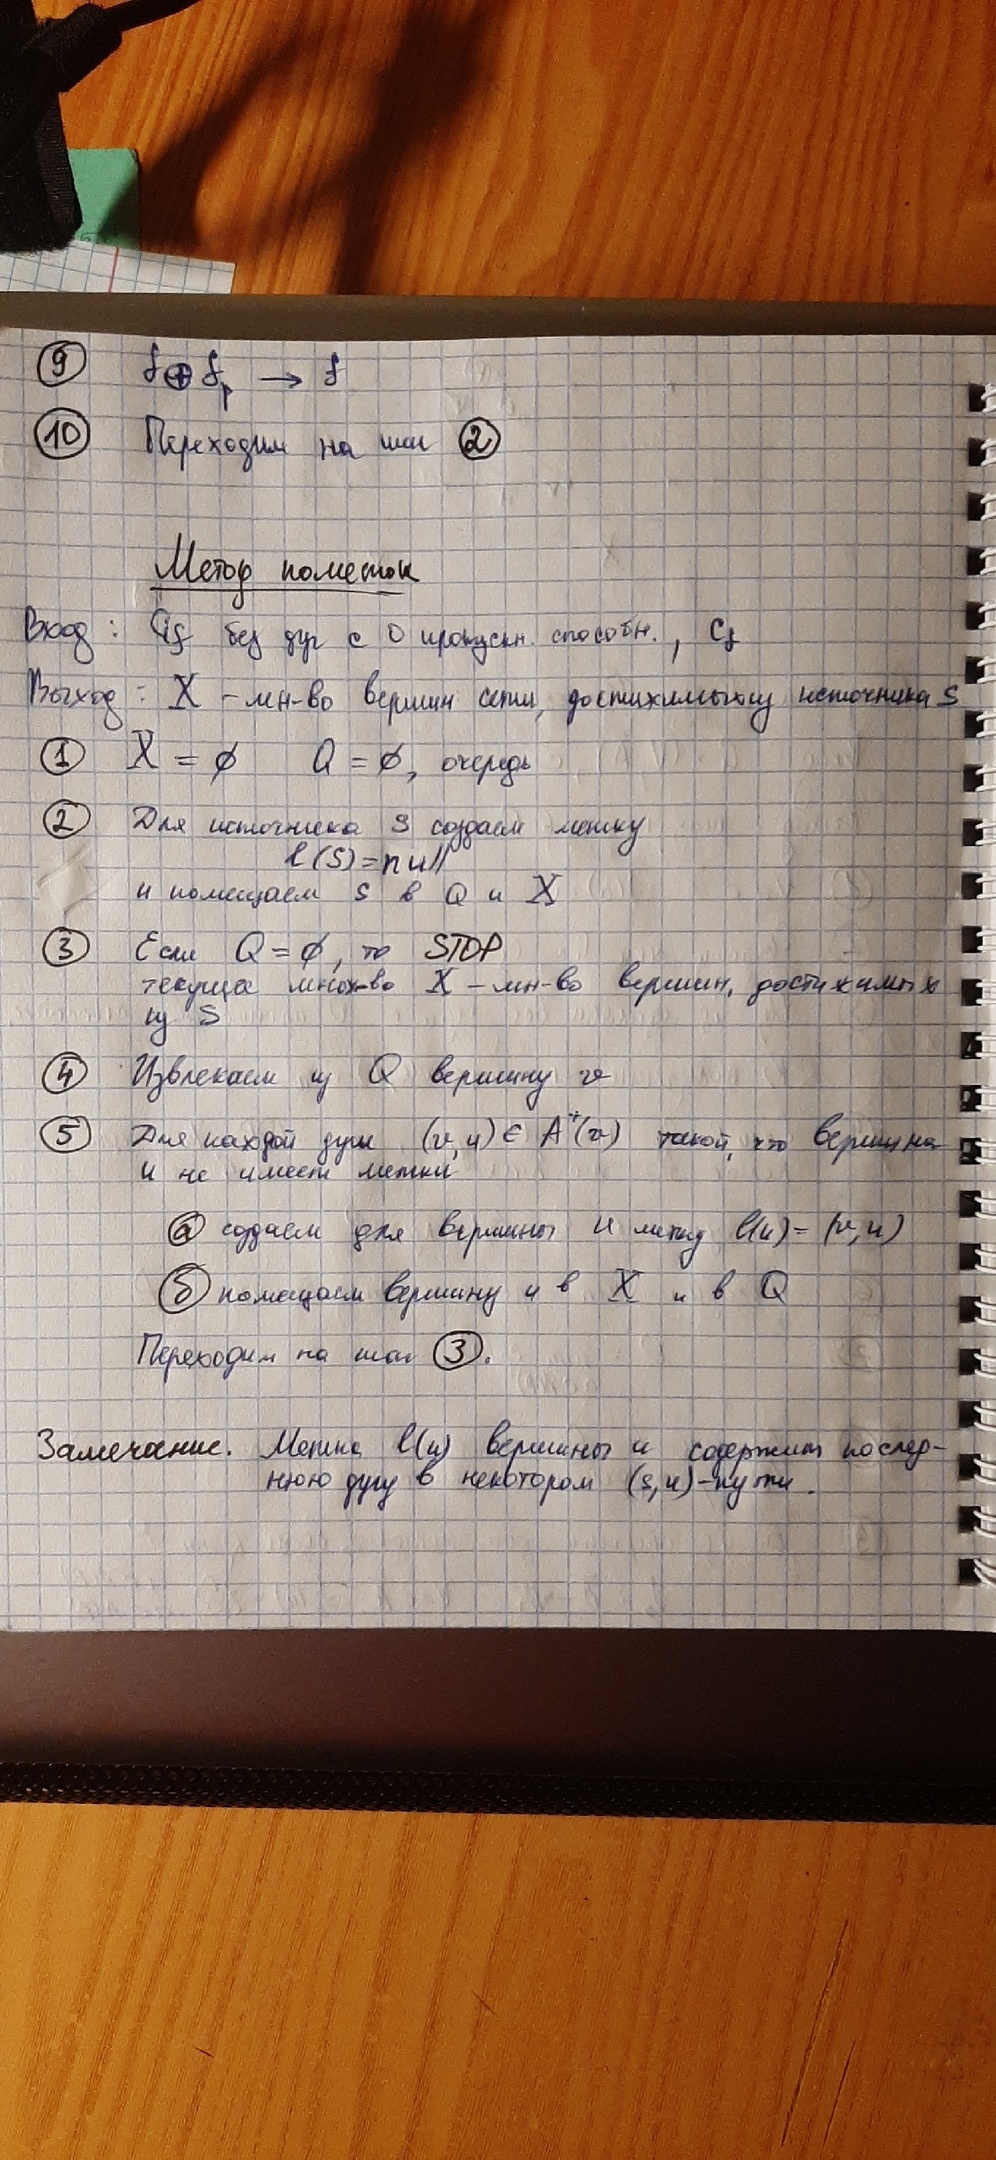 ⑨ f ⊕ fₚ → f
⑩ Переходим на шаг ②
Метод пометок
Вход: G_f без дуг с 0 пропускн. способн., C_f
Выход: X – мн-во вершин сети, достижимых из источника s
① X = ∅ Q = ∅, очередь
② Для источника s создаем метку
l(s) = null
и помещаем s в Q и X
③ Если Q = ∅, то STOP
текущее множ-во X – мн-во вершин, достижимых
из s
④ Извлекаем из Q вершину v
⑤ Для каждой дуги (v, u) ∈ A⁺(v) такой, что вершина
u не имеет метки
ⓐ создаем для вершины u метку l(u) = (v, u)
ⓑ помещаем вершину u в X и в Q
Переходим на шаг ③.
Замечание. Метка l(u) вершины u содержит послед-
нюю дугу в некотором (s, u)-пути.